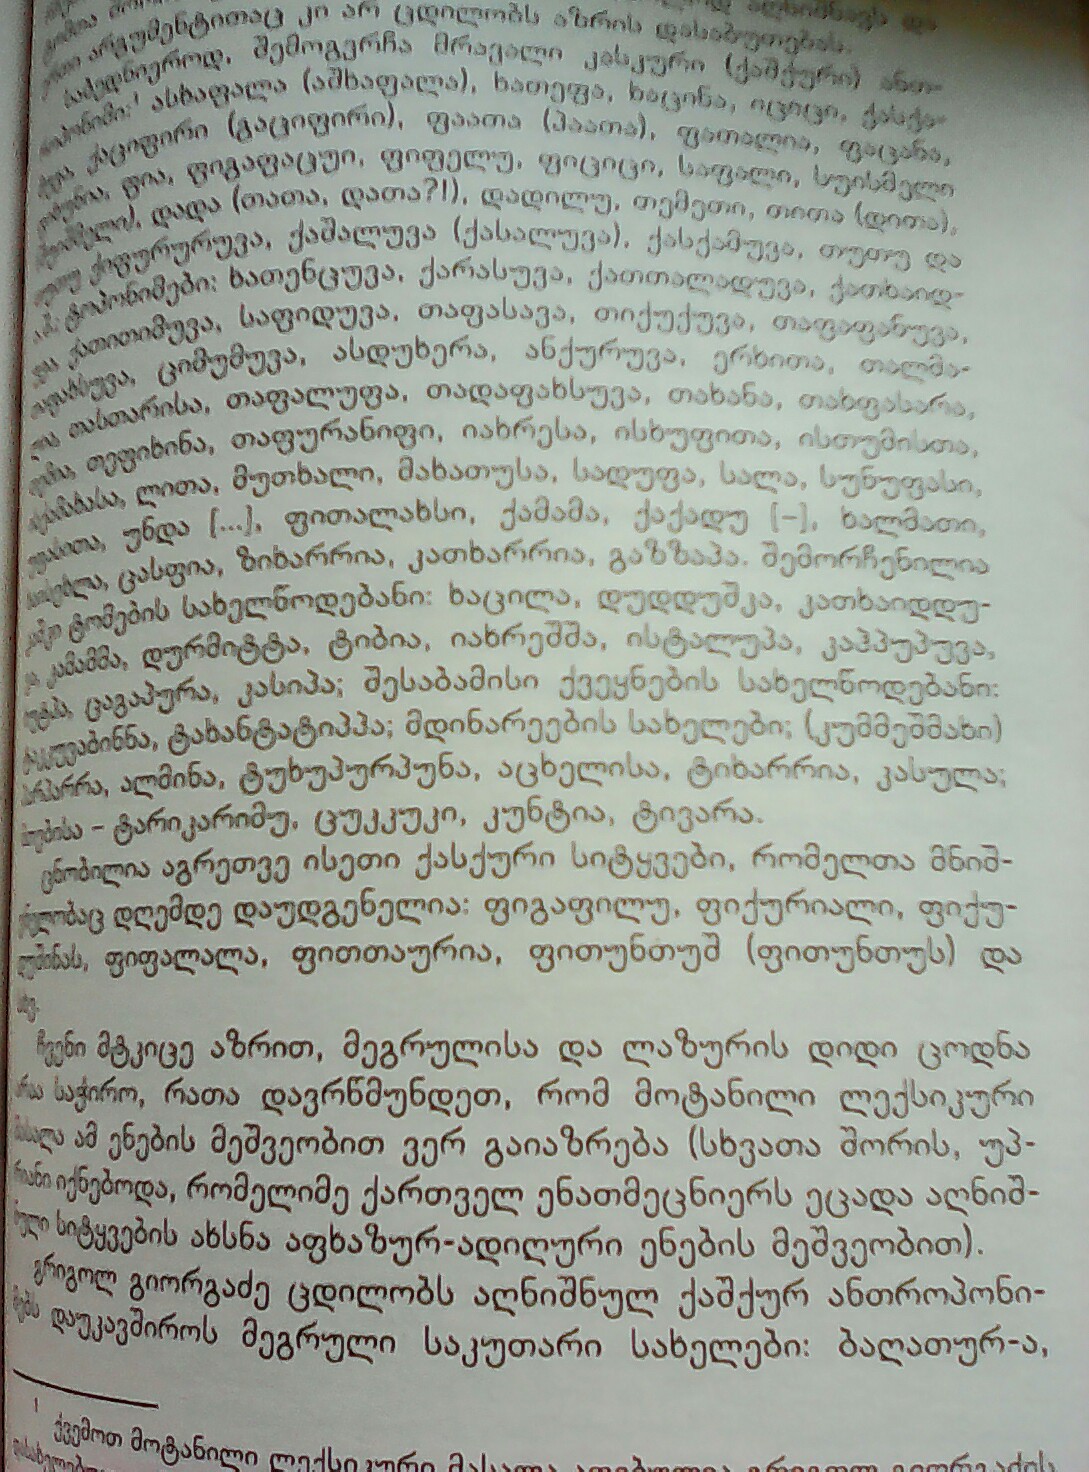 არგუმენტითაც კი არ ცდილობს აზრის დასაბუთებას.
საბედნიეროდ, შემოგვრჩა მრავალი კასკური (ქაშქური) ანთ-
ასხაფალა (აშხაფალა), ხათეფა, ხაცინა, იციცი, ქასქა-
ქაციფირი (გაციფირი), ფაათა (პაათა), ფათალია, ფაცანა,
ფია, ფიგაფაცუი, ფიფელუ, ფიციცი, საფალი, სუისმელი
დადა (თათა, დათა?!), დადილუ, თემეთი, თითა (დითა),
ქიფურურუვა, ქაშალუვა (ქასალუვა), ქასქამუვა, თუთუ და
ტოპონიმები: ხათენცუვა, ქარასუვა, ქათთალადუვა, ქათხაიდ-
ქათითიმუვა, საფიდუვა, თაფასავა, თიქუქუვა, თაფაფანუვა,
ციმუმუვა, ასდუხერა, ანქურუვა, ერხითა, თალმა-
თასთარისა, თაფალუფა, თადაფახსუვა, თახანა, თახფასარა,
თეფიხინა, თაფურანიფი, იახრესა, ისხუფითა, ისთუმისთა,
ლითა, მუთხალი, მახათუსა, სადუფა, სალა, სუნუფასი,
უნდა [...], ფითალახსი, ქამამა, ქაქადუ [–], ხალმათი,
ცასფია, ზიხარრია, კათხარრია, გაზზაპა. შემორჩენილია
ტომების სახელწოდებანი: ხაცილა, დუდდუშკა, კათხაიდდუ-
კამამმა, დურმიტტა, ტიბია, იახრეშშა, ისტალუპა, კაპპუპუვა,
ცაგაპურა, კასიპა; შესაბამისი ქვეყნების სახელწოდებანი:
ტახანტატიპპა; მდინარეების სახელები; (კუმმეშმახი)
ალმინა, ტუხუპურპუნა, აცხელისა, ტიხარრია, კასულა;
– ტარიკარიმუ, ცუკკუკი, კუნტია, ტივარა.
ცნობილია აგრეთვე ისეთი ქასქური სიტყვები, რომელთა მნიშ-
ვნელობაც დღემდე დაუდგენელია: ფიგაფილუ, ფიქურიალი, ფიქუ-
ფიფალალა, ფითთაურია, ფითუნთუშ (ფითუნთუს) და
სხვ.
ჩვენი მტკიცე აზრით, მეგრულისა და ლაზურის დიდი ცოდნა
არაა საჭირო, რათა დავრწმუნდეთ, რომ მოტანილი ლექსიკური
მასალა ამ ენების მეშვეობით ვერ გაიაზრება (სხვათა შორის, უპ-
რიანი იქნებოდა, რომელიმე ქართველ ენათმეცნიერს ეცადა აღნიშ-
ნული სიტყვების ახსნა აფხაზურ-ადიღური ენების მეშვეობით).
გრიგოლ გიორგაძე ცდილობს აღნიშნულ ქაშქურ ანთროპონი-
მებს დაუკავშიროს მეგრული საკუთარი სახელები: ბაღათურ-ა,
1 ქვემოთ მოტანილი ლექსიკური მასალა